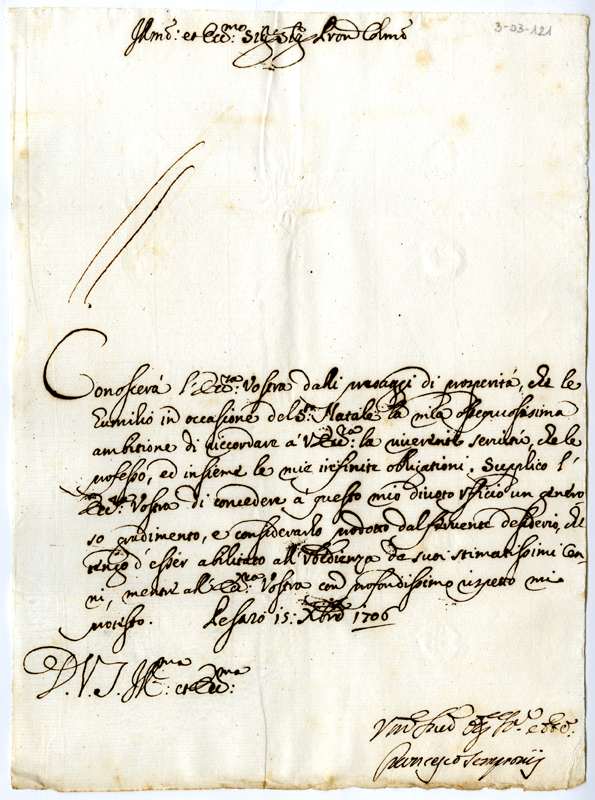 Ill.mo: et Ecc.mo: Sig.r Sig.r Pron Colmo
3-03-121
Conoscerà l'Ecc.za: Vostra dalli presaggi di prosperità, che le
humilio in occasione del S.mo Natale la mia ossequiosissima
ambitione di riccordare a' V. Ecc.za: la riverente servitù, che le
professo, ed insieme le mie infinite obligationi. Supplico l'
Ecc.za Vostra di concedere a questo mio divoto ufficio un genero
so gradimento, e considerarlo prodotto dal fervente desiderio, che
tengo d'esser abilitato all'Vbidienza de suoi stimatissimi Cen-
ni, mentre all'Ecc.za Vostra con profondissimo rispetto mi
protesto. Pesaro 15: Xbre 1706
D. V. S. Ill.ma: et Ecc.ma:
Francesco Sempronij